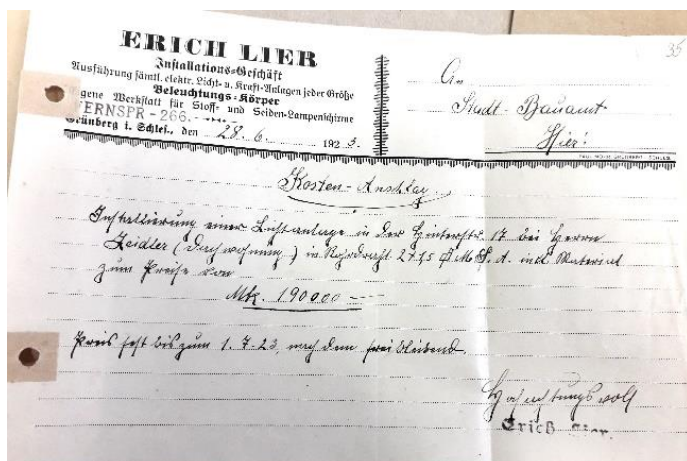 35
ERICH LIER
Installations-Geschäft
Ausführung sämtl. elektr. Licht- u. Kraft-Anlagen jeder Größe
Beleuchtungs-Körper
Eigene Werkstatt für Stoff- und Seiden-Lampenschirme
FERNSPR - 266.
Grünberg i. Schles., den 28. 6. 1923.
An
Stadt-Bauamt
Hier!
Kosten-Anschlag
Installierung einer Lichtanlage in der Hinterstr. 17 bei Herrn
Zeidler (Dachwohnung) in Rohrdraht 2 x 1,5 incl. Material
zum Preise von
Mk. 190000 —
Preis fest bis zum 1.7.23, nach dem freibleibend.
Hochachtungsvoll
Erich Lier.